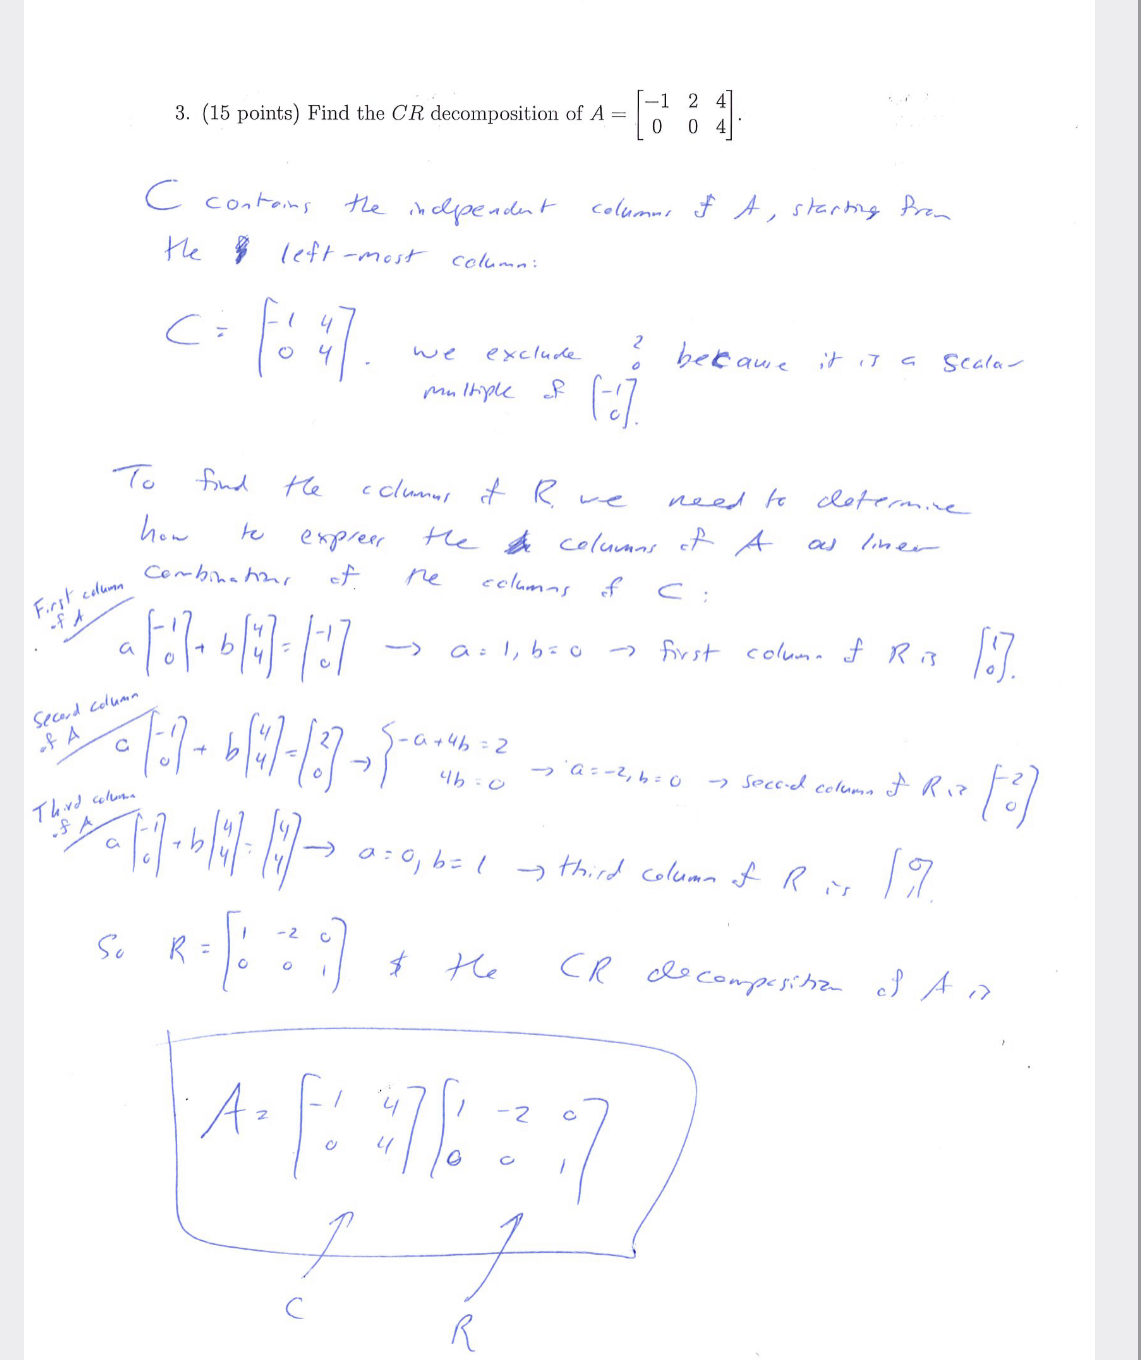 3. (15 points) Find the CR decomposition of A = [−1 2 4; 0 0 4].
C contains the independent columns of A, starting from
the left-most column:
C = [-1 4; 0 4]. we exclude 2 0 because it is a scalar
multiple of [-1; 0].
To find the columns of R we need to determine
how to express the columns of A as linear
combinations of the columns of C:
First column of A
a[-1; 0] + b[4; 4] = [-1; 0] → a = 1, b = 0 → first column of R is [1; 0].
Second column of A
a[-1; 0] + b[4; 4] = [2; 0] → { -a + 4b = 2; 4b = 0 → a = -2, b = 0 → second column of R is [-2; 0]
Third column of A
a[-1; 0] + b[4; 4] = [4; 4] → a = 0, b = 1 → third column of R is [0; 1].
So R = [1 -2 0; 0 0 1] & the CR decomposition of A is
A = [-1 4; 0 4] [1 -2 0; 0 0 1]
C
R